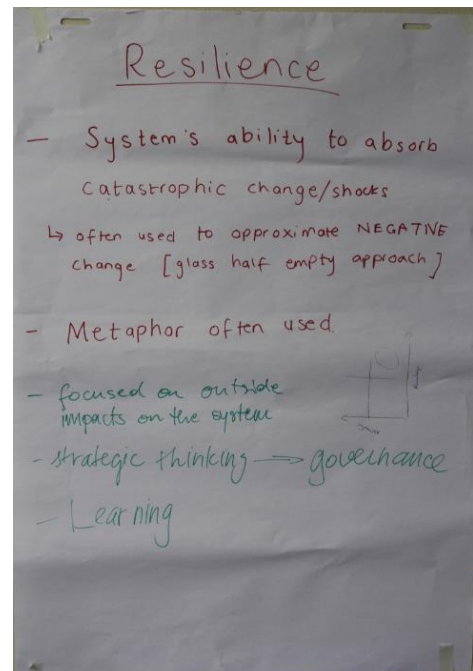 Resilience
- System's ability to absorb
catastrophic change/shocks
↳ often used to opproximate NEGATIVE
change [glass half empty approach]
- Metaphor often used.
- focused on outside
impacts on the system
- strategic thinking → governance
- Learning